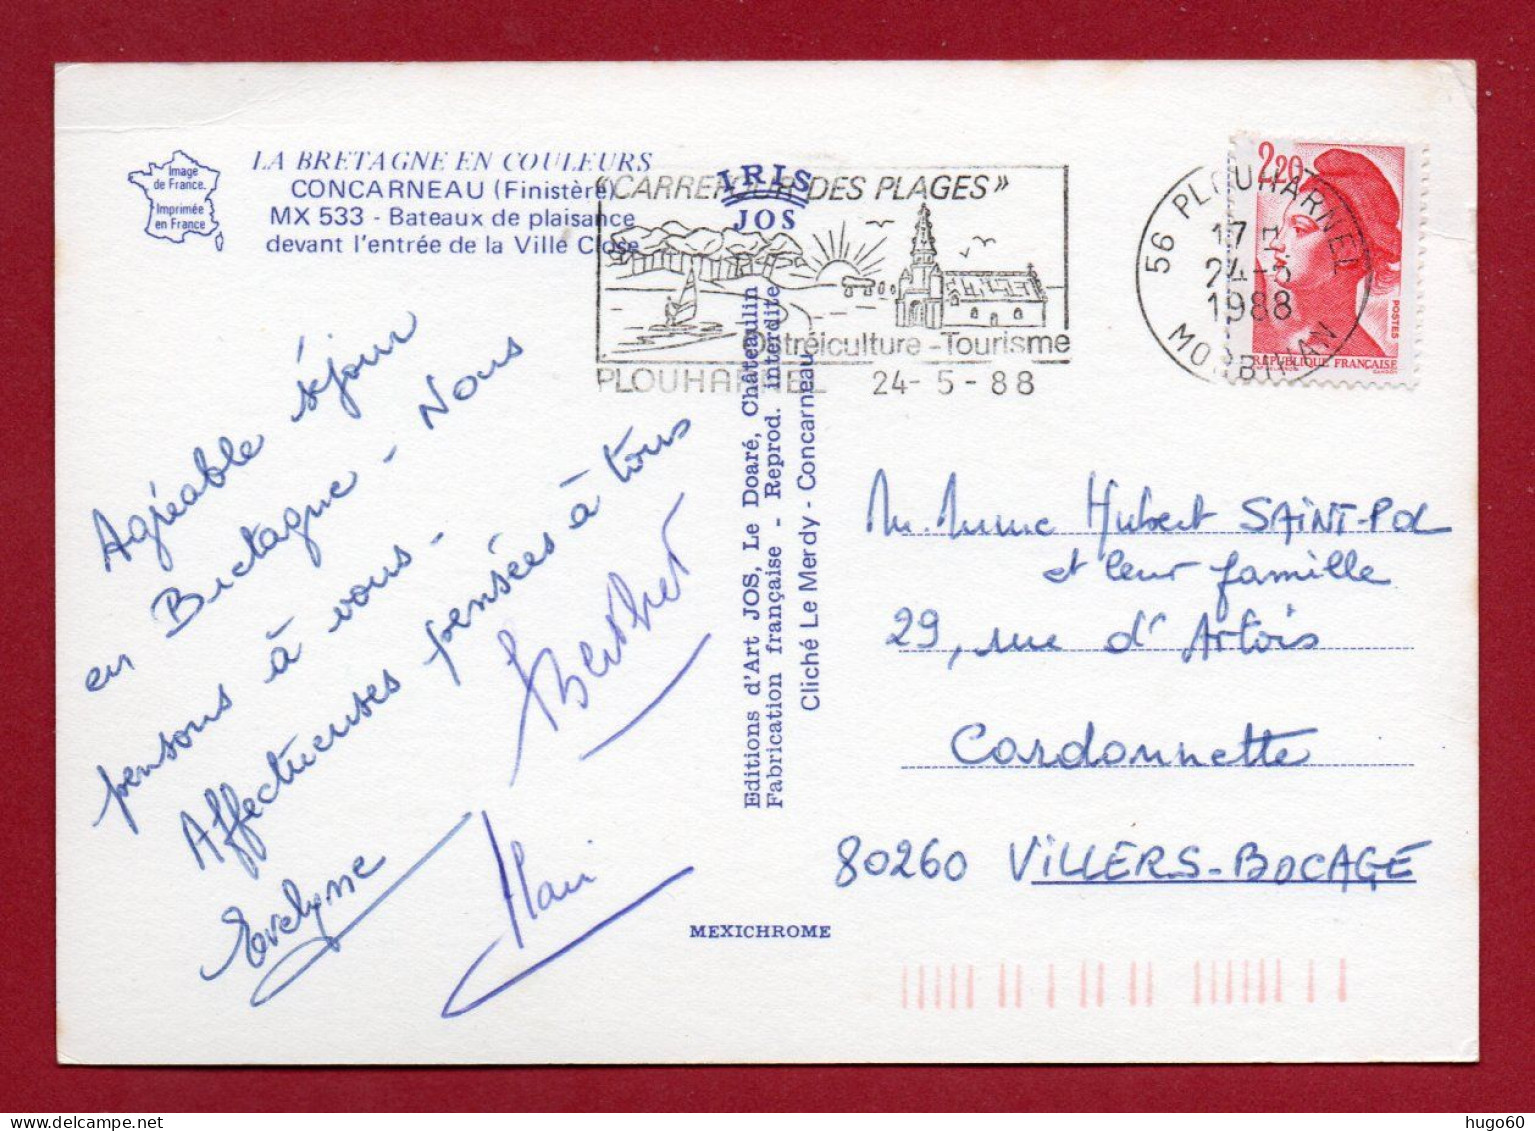 Image
de France.
Imprimée
en France
LA BRETAGNE EN COULEURS
CONCARNEAU (Finistère)
MX 533 - Bateaux de plaisance
devant l'entrée de la Ville Close
IRIS
JOS
«CARREFOUR DES PLAGES»
Ostréiculture - Tourisme
PLOUHARNEL 24-5-88
56 PLOUHARNEL
24-5
1988
MORBIHAN
2,20
POSTES
RÉPUBLIQUE FRANÇAISE
Agréable séjour
en Bretagne - Nous
pensons à vous -
Affectueuses pensées à tous
Evelyne
Alain
Editions d'Art JOS, Le Doaré, Châteaulin
Fabrication française - Reprod. interdite
Cliché Le Merdy - Concarneau
M. Mme Hubert SAINT-POL
et leur famille
29, rue d'Artois
Cardonnette
80260 VILLERS-BOCAGE
MEXICHROME
hugo60